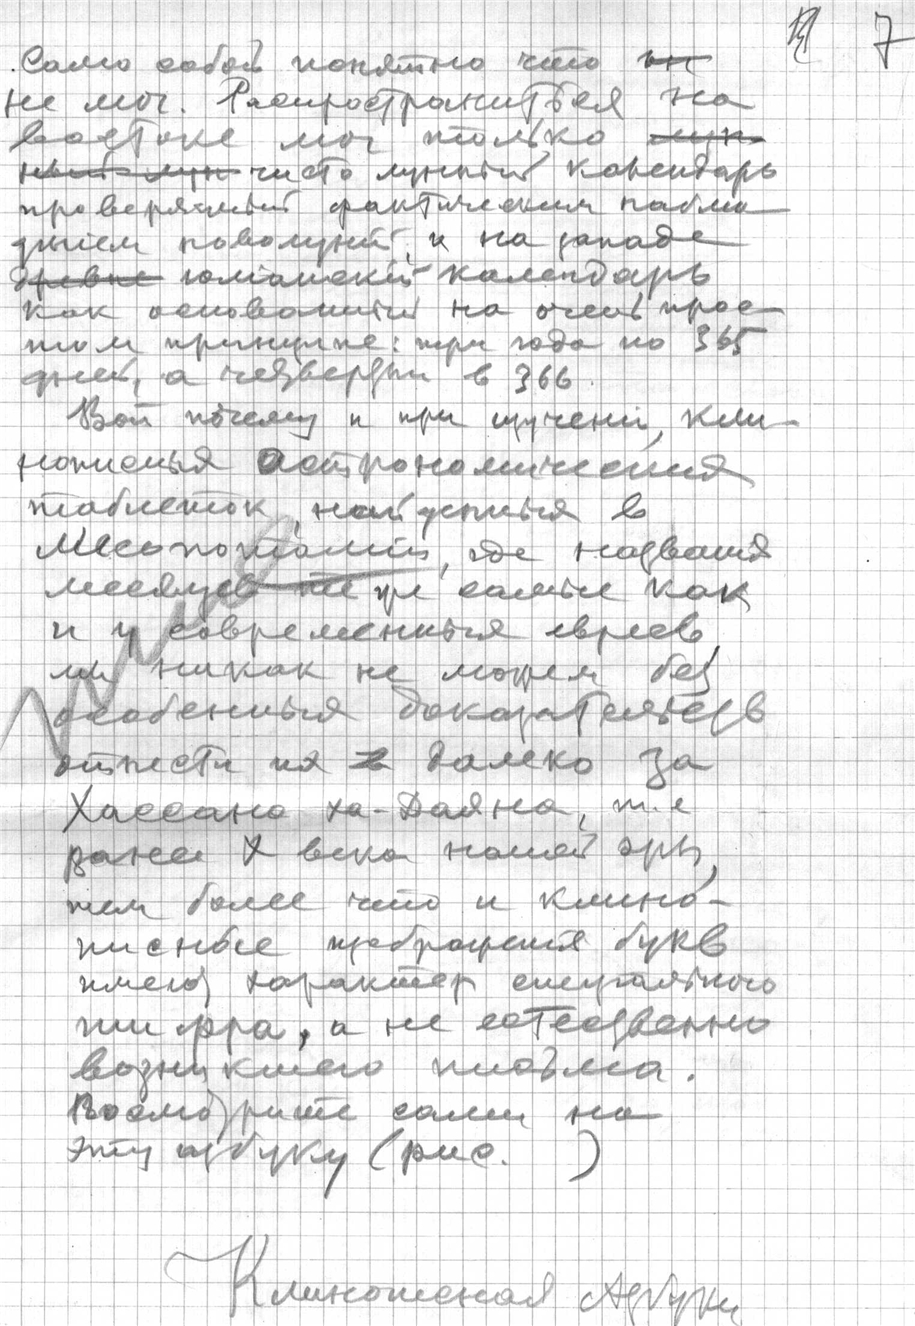 7
Само собой понятно что
не мог. Распространиться на
востоке мог только
чисто лунный календарь
проверяемый фактическим наблю
дением новолуний, и на западе
юлианский календарь
как основанный на очень прос
том принципе: три года по 365
дней, а четвертый в 366.
Вот почему и при изучении, кли
нописных астрономических
таблеток, найденных в
Месопотамии, где названия
месяцев те же самые как
и у современных евреев,
мы никак не можем без
особенных доказательств
отнести их далеко за
Хассана ха-Даяна, т.е
ранее X века нашей эры,
тем более что и клино-
писные изображения букв
имеют характер специального
шифра, а не естественно
возникшего письма.
Посмотрите сами на
эту азбуку (рис. )
Клинописная Азбука